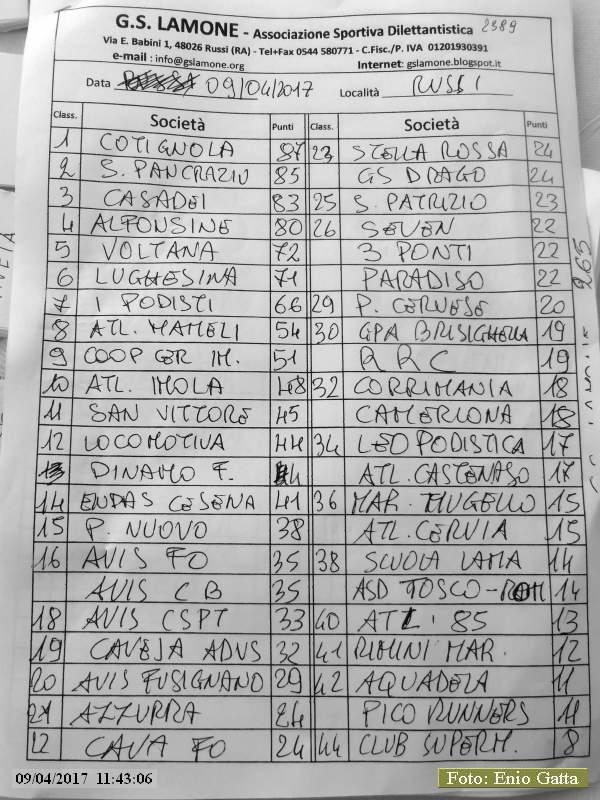 G.S. LAMONE - Associazione Sportiva Dilettantistica 2389
Via E. Babini 1, 48026 Russi (RA) - Tel+Fax 0544 580771 - C.Fisc./P. IVA 01201930391
e-mail : info@gslamone.org Internet: gslamone.blogspot.it
Data 09/04/2017 Località RUSSI
Class. Società Punti Class. Società Punti
1 COTIGNOLA 87 23 STELLA ROSSA 24
2 S. PANCRAZIO 85 GS DRAGO 24
3 CASADEI 83 25 S. PATRIZIO 23
4 ALFONSINE 80 26 SEVEN 22
5 VOLTANA 72 3 PONTI 22
6 LUGHESINA 71 PARADISO 22
7 I PODISTI 66 29 P. CERVESE 20
8 ATL. MAMELI 54 30 GPA BRISIGHELLA 19
9 COOP CER IM. 51 RRC 19
10 ATL. IMOLA 48 32 CORRIMANIA 18
11 SAN VITTORE 45 CAMERLONA 18
12 LOCOMOTIVA 44 34 LEO PODISTICA 17
DINAMO F. 44 ATL. CASTENASO 17
14 ENDAS CESENA 41 36 MAR. MUGELLO 15
15 P. NUOVO 38 ATL. CERVIA 15
16 AVIS FO 35 38 SCUOLA LAMA 14
AVIS CB 35 ASD TOSCO-ROM 14
18 AVIS CSPT 33 40 ATL. 85 13
19 CAVEJA ADVS 32 41 RIMINI MAR. 12
20 AVIS FUSIGNANO 29 42 AQUADELA 11
21 AZZURRA PICO RUNNERS 11
22 CAVA FO 24 44 CLUB SUPERM. 8
265
09/04/2017 11:43:06
Foto: Enio Gatta